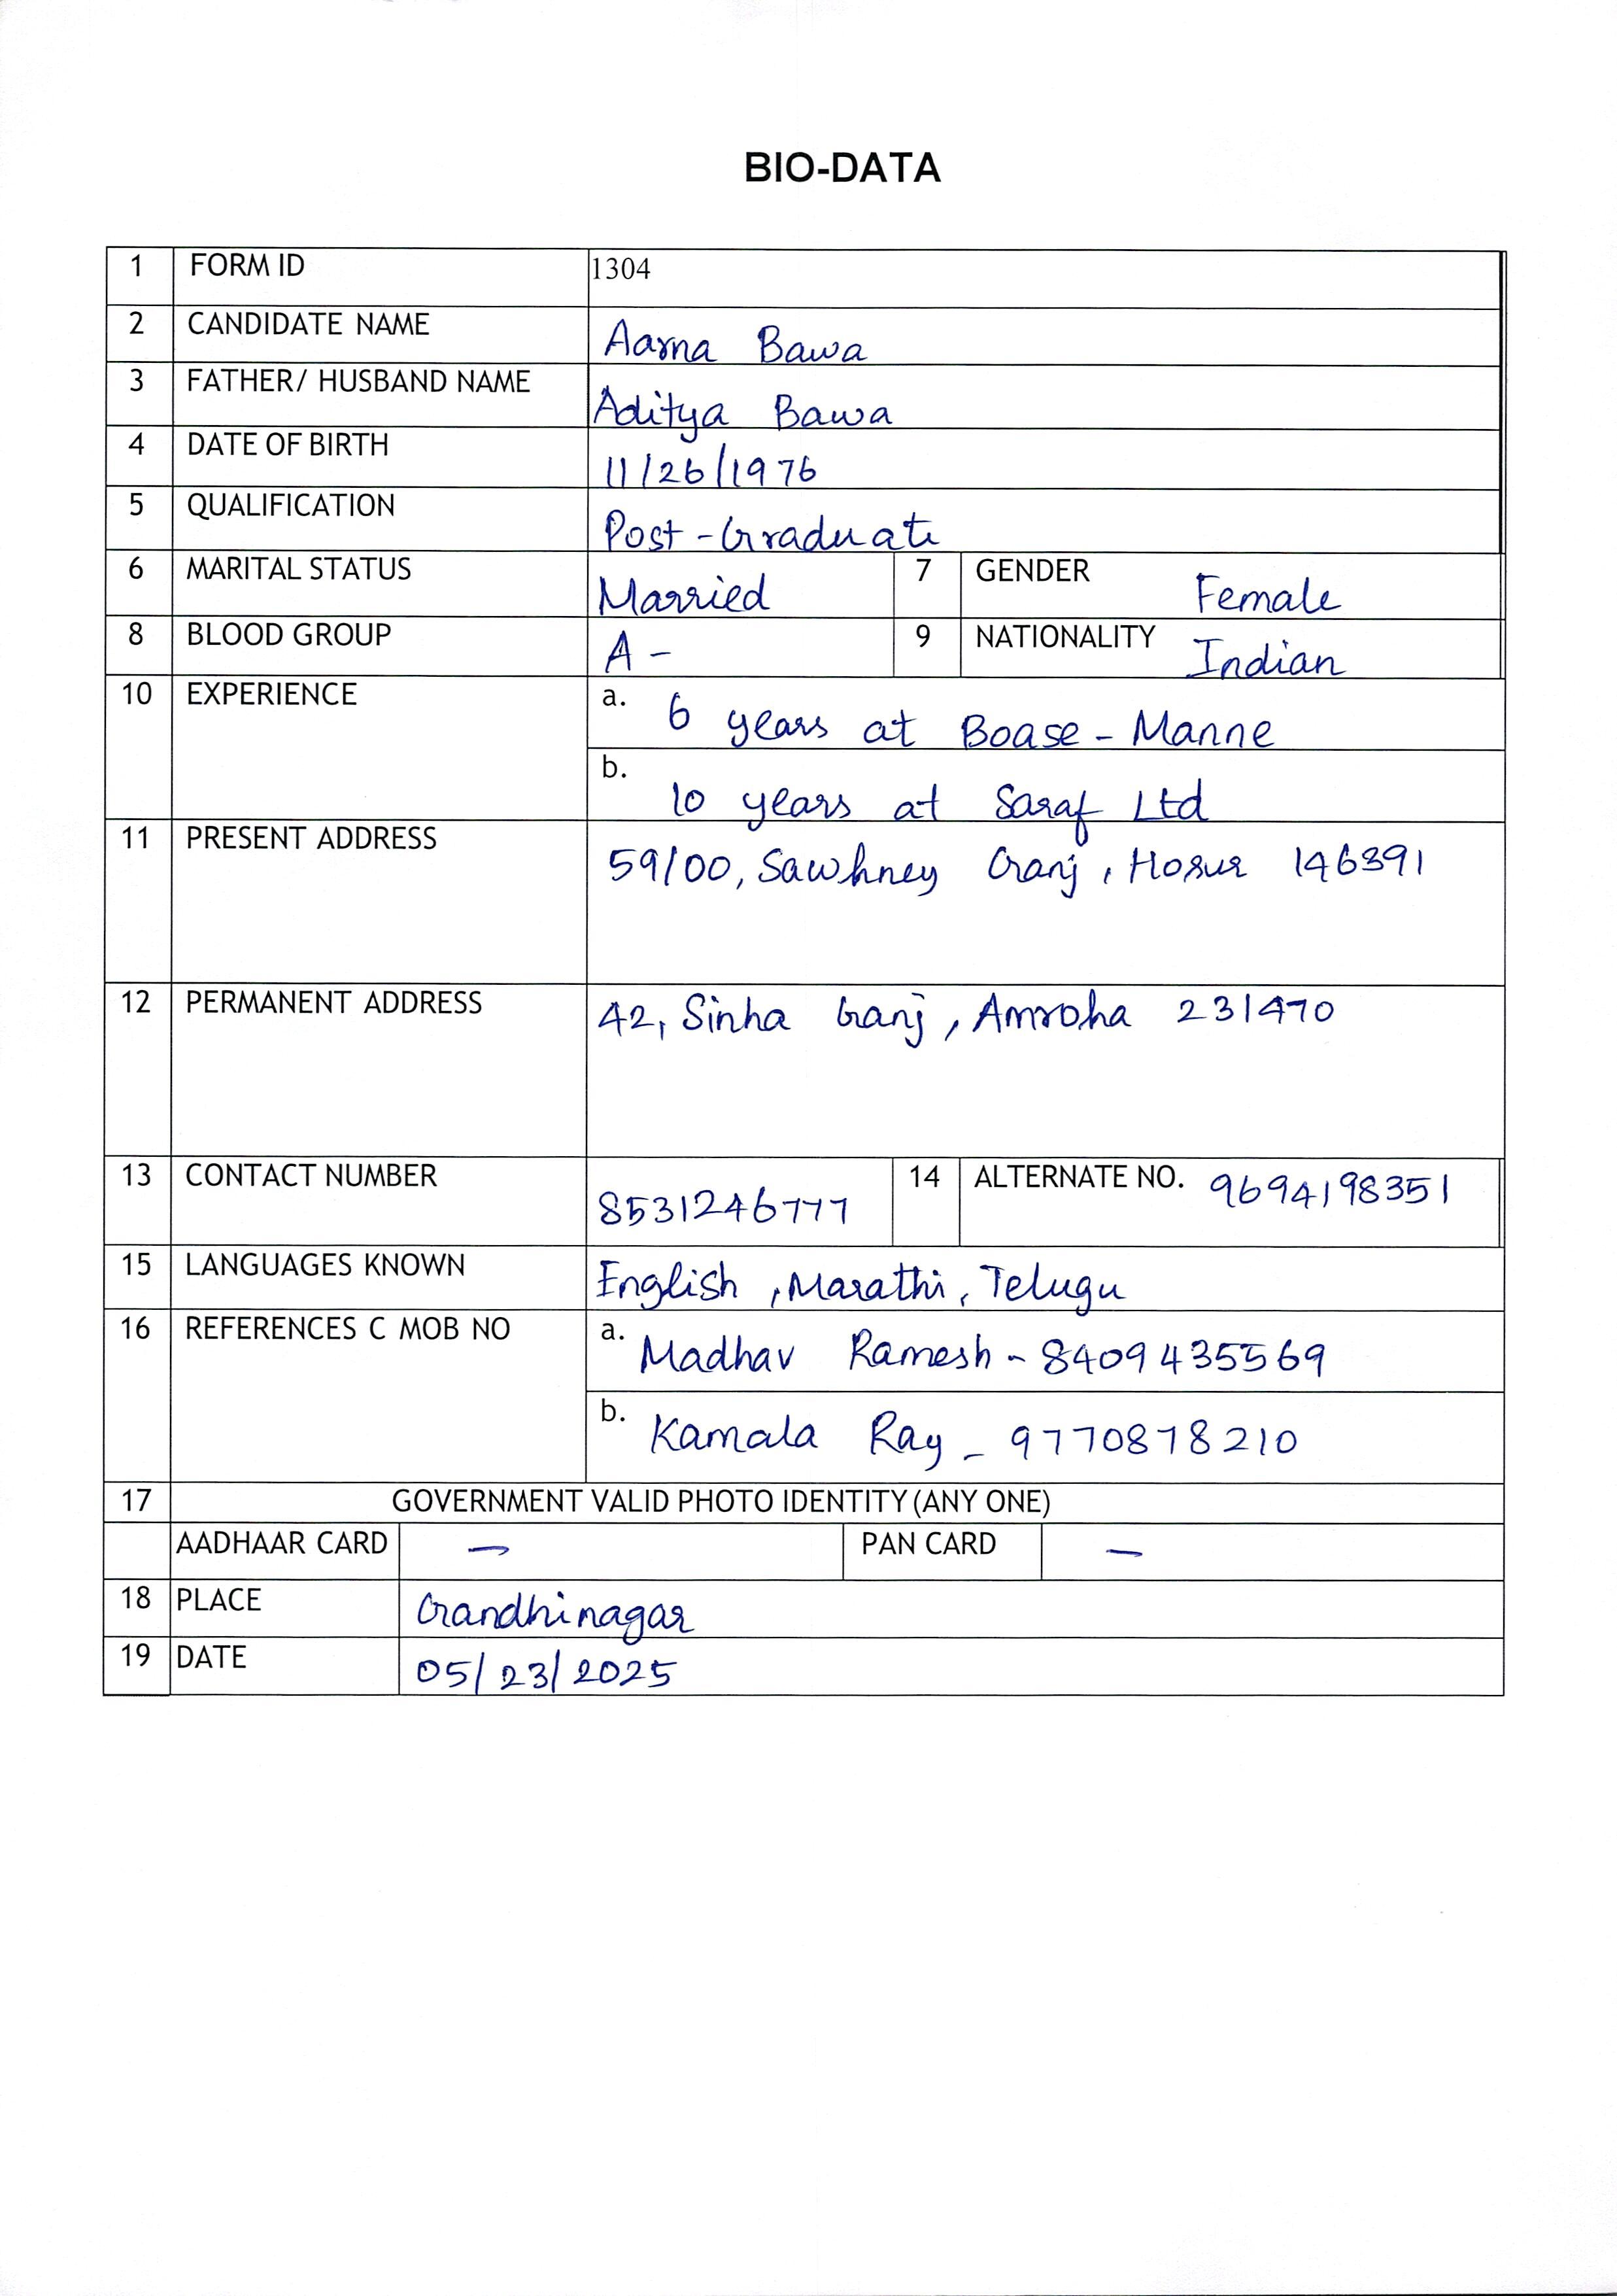 BIO-DATA
1 FORM ID 1304
2 CANDIDATE NAME Aarna Bawa
3 FATHER/ HUSBAND NAME Aditya Bawa
4 DATE OF BIRTH 11/26/1976
5 QUALIFICATION Post-Graduate
6 MARITAL STATUS Married 7 GENDER Female
8 BLOOD GROUP A- 9 NATIONALITY Indian
10 EXPERIENCE a. 6 years at Boase-Manne
b. 10 years at Saraf Ltd
11 PRESENT ADDRESS 59/00, Sawhney Ganj, Hosur 146391
12 PERMANENT ADDRESS 42, Sinha Ganj, Amroha 231470
13 CONTACT NUMBER 8531246777 14 ALTERNATE NO. 9694198351
15 LANGUAGES KNOWN English, Marathi, Telugu
16 REFERENCES C MOB NO a. Madhav Ramesh - 8409435569
b. Kamala Ray - 9770878210
17 GOVERNMENT VALID PHOTO IDENTITY (ANY ONE)
AADHAAR CARD - PAN CARD -
18 PLACE Gandhinagar
19 DATE 05/23/2025